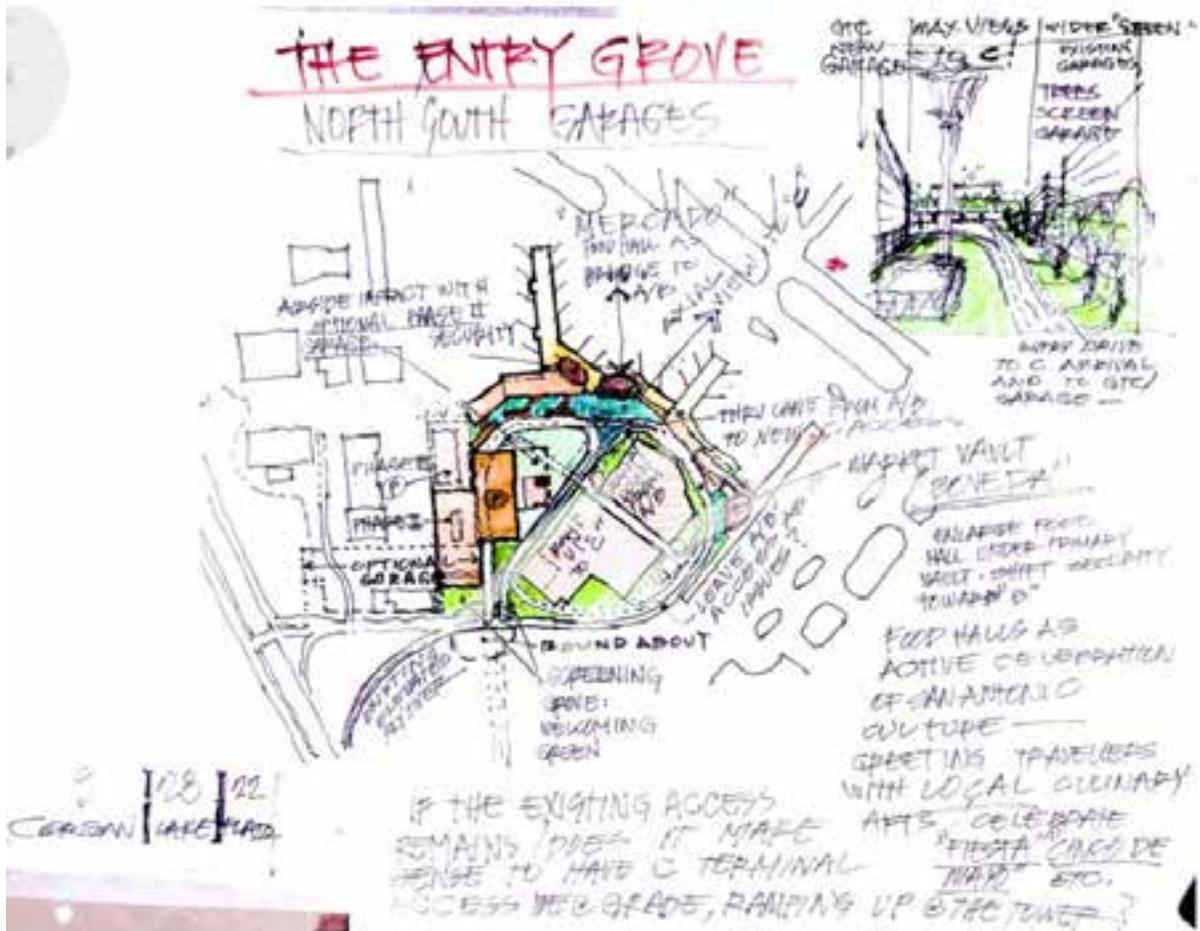 THE ENTRY GROVE
NORTH SOUTH GARAGES
GTC
NEW
GARAGE
MAX. VIEWS
TO C!
WIDER "GREEN"
EXISTING
GARAGES
TREES
SCREEN
GARAGE
ENTRY DRIVE
TO C ARRIVAL
AND TO GTC/
GARAGE —
"MERCADO"
FOOD HALL AS
BRIDGE TO
A/B
VIEW
AIRSIDE IMPACT WITH
OPTIONAL PHASE II
SECURITY
THRU LANE FROM A/B
TO NEW C ACCESS
MARKET VAULT
ENLARGE FOOD
HALL UNDER PRIMARY
VAULT - SHIFT SECURITY
TOWARD "B"
PHASE II
PHASE II
OPTIONAL
GARAGE
ROUND ABOUT
EXISTING
ELEVATED
SCREENING
WELCOMING
GREEN
FOOD HALLS AS
ACTIVE CELEBRATION
OF SAN ANTONIO
CULTURE —
GREETING TRAVELLERS
WITH LOCAL CULINARY
ARTS CELEBRATE
"FIESTA" CINCO DE
MAYO" ETC.
28 22
LAKE FLATO
IF THE EXISTING ACCESS
REMAINS / DOES IT MAKE
SENSE TO HAVE C TERMINAL
ACCESS BELOW GRADE, RAMPING UP @ THE TOWER?